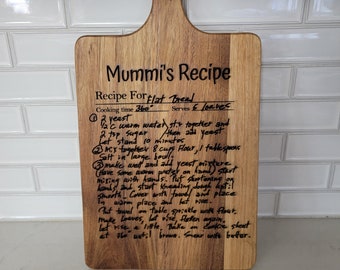 Mummi's Recipe
Recipe For Flat Bread
Cooking time 360° Serves 6 loaves
① 2 yeast
1/2 c warm water stir together and
2 tsp sugar then add yeast
Let stand 10 minutes
② together 8 cups flour, 1 tablespoon
Salt in large bowl.
③ make well and add yeast mixture
Have some warm water on hand, start
mixing with hands. Put on
hands and start kneading dough until
smooth. Cover with towel and place
in warm place and let rise.
Put towel on table, sprinkle with flour,
make loaves, let rise, flatten again,
let rise a little. Bake on cookie sheet
at until brown. Smear with butter.